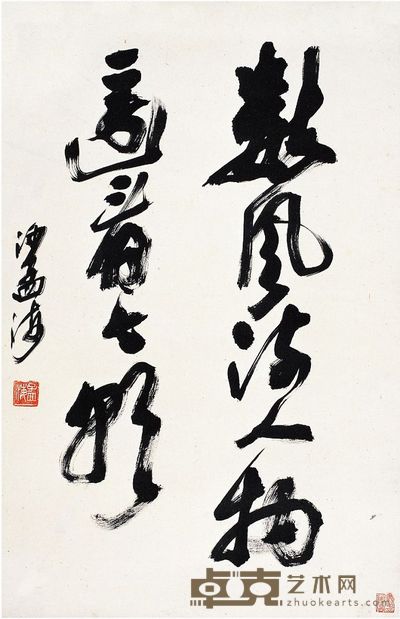 數風流人物
還看今朝
沙孟海
卓克艺术网
zhuokearts.com